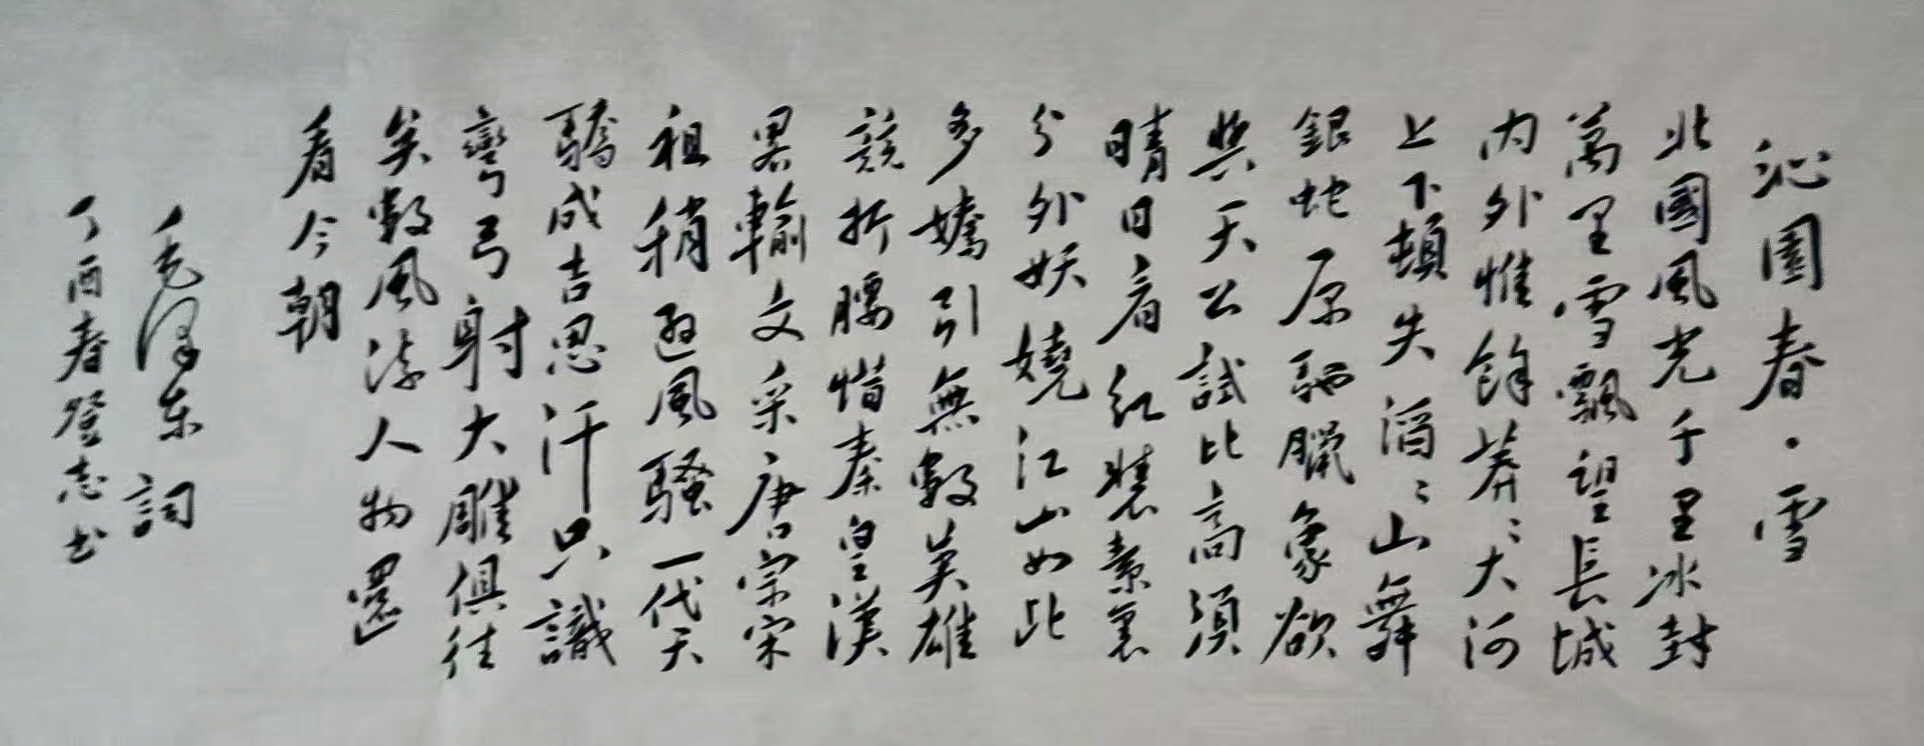 沁園春·雪
北國風光千里冰封
萬里雪飄望長城
内外惟餘莽〻大河
上下頓失滔〻山舞
銀蛇原馳臘象欲
與天公試比高須
晴日看红裝素裹
分外妖嬈江山如此
多嬌引無數英雄
競折腰惜秦皇漢
畧輸文采唐宗宋
祖稍遜風騷一代天
驕成吉思汗只識
彎弓射大雕俱往
矣數風流人物還
看今朝
毛泽东詞
丁酉春登志书